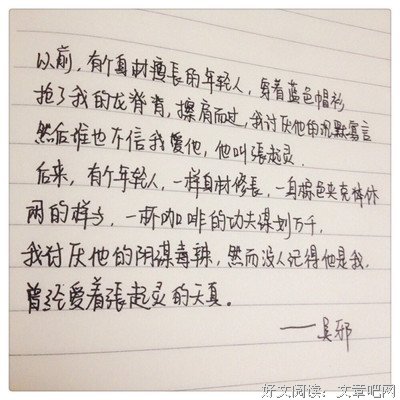 以前，有个身材修長的年轻人，穿着蓝色帽衫
抢了我的龙脊背，擦肩而过，我讨厌他的沉默寡言
然后谁也不信我愛他，他叫張起灵.
后来，有个年轻人，一样身材修長，一身棕色夹克棒休
两的样子，一杯咖啡的功夫谋划万千，
我讨厌他的阴谋毒辣，然而没人记得他是我，
曾经愛着張起灵的天真。
——吴邪
好文阅读：文章吧网